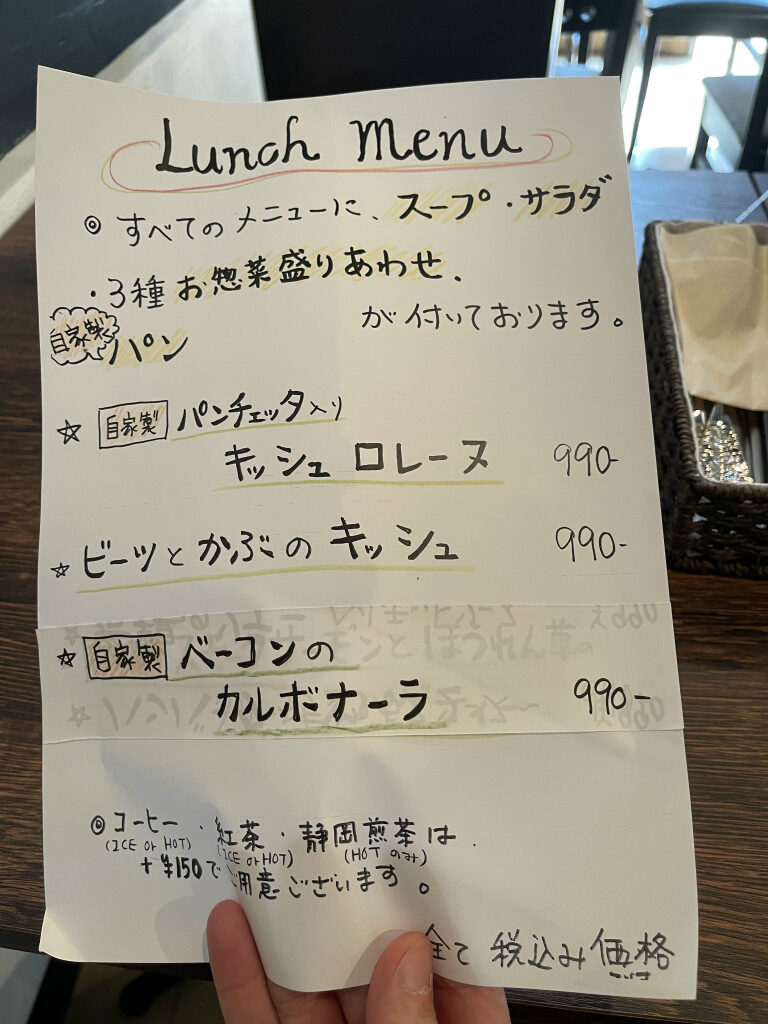 Lunch Menu
◎ すべてのメニューに、スープ・サラダ
・3種お惣菜盛りあわせ、
自家製 パン
が付いております。
☆ 自家製 パンチェッタ入り
キッシュ ロレーヌ 990-
☆ ビーツとかぶのキッシュ 990-
☆ 自家製 ベーコンの
カルボナーラ 990-
◎ コーヒー・紅茶・静岡煎茶は
(ICE or HOT) (ICE or HOT) (HOT のみ)
+¥150でご用意ございます。
全て 税込み価格